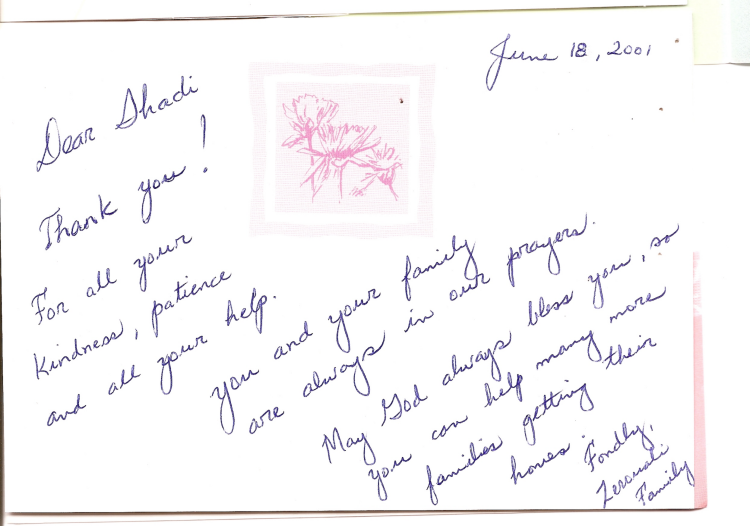 June 18, 2001
Dear Shadi
Thank you!
For all your
kindness, patience
and all your help.
you and your family
are always in our prayers.
May God always bless you, so
you can help many more
families getting their
homes.
Fondly,
Zerouali
Family